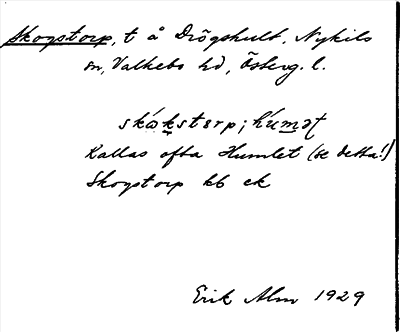 Skogstorp, t å Drögshult, Nykils
sn, Valkebo hd, Österg. l.
skɷ́kstɛrp; húməɭ
Kallas ofta Humlet (se detta!)
Skogstorp kb ek
Erik Alm 1929